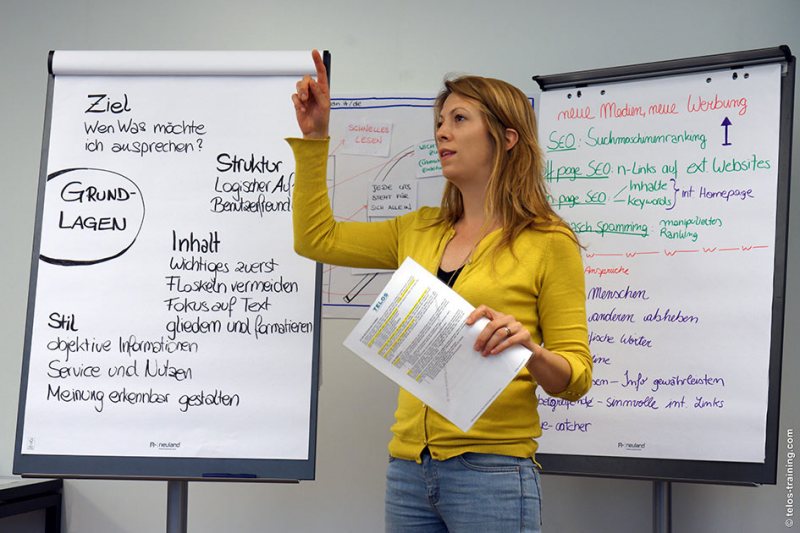 Ziel
Wen Was möchte
ich ansprechen?
GRUND-
LAGEN
Struktur
Logischer
Inhalt
Wichtiges zuerst
Floskeln vermeiden
Fokus auf Text
gliedern und formatieren
Stil
objektive Informationen
Service und Nutzen
Meinung erkennbar gestalten
neuland
SCHNELLES
LESEN
JEDE UNS
STEHT FÜR
SICH ALLEIN
TELOS
neue Medien, neue Werbung
SEO: Suchmaschinenranking
page SEO: n-Links auf ext. Websites
page SEO: Inhalte
keywords
int. Homepage
Spamming manipuliertes
Ranking
Ansprüche
Menschen
anderen abheben
Wörter
Info gewährleisten
sinnvolle int. Links
catcher
neuland
© telos-training.com